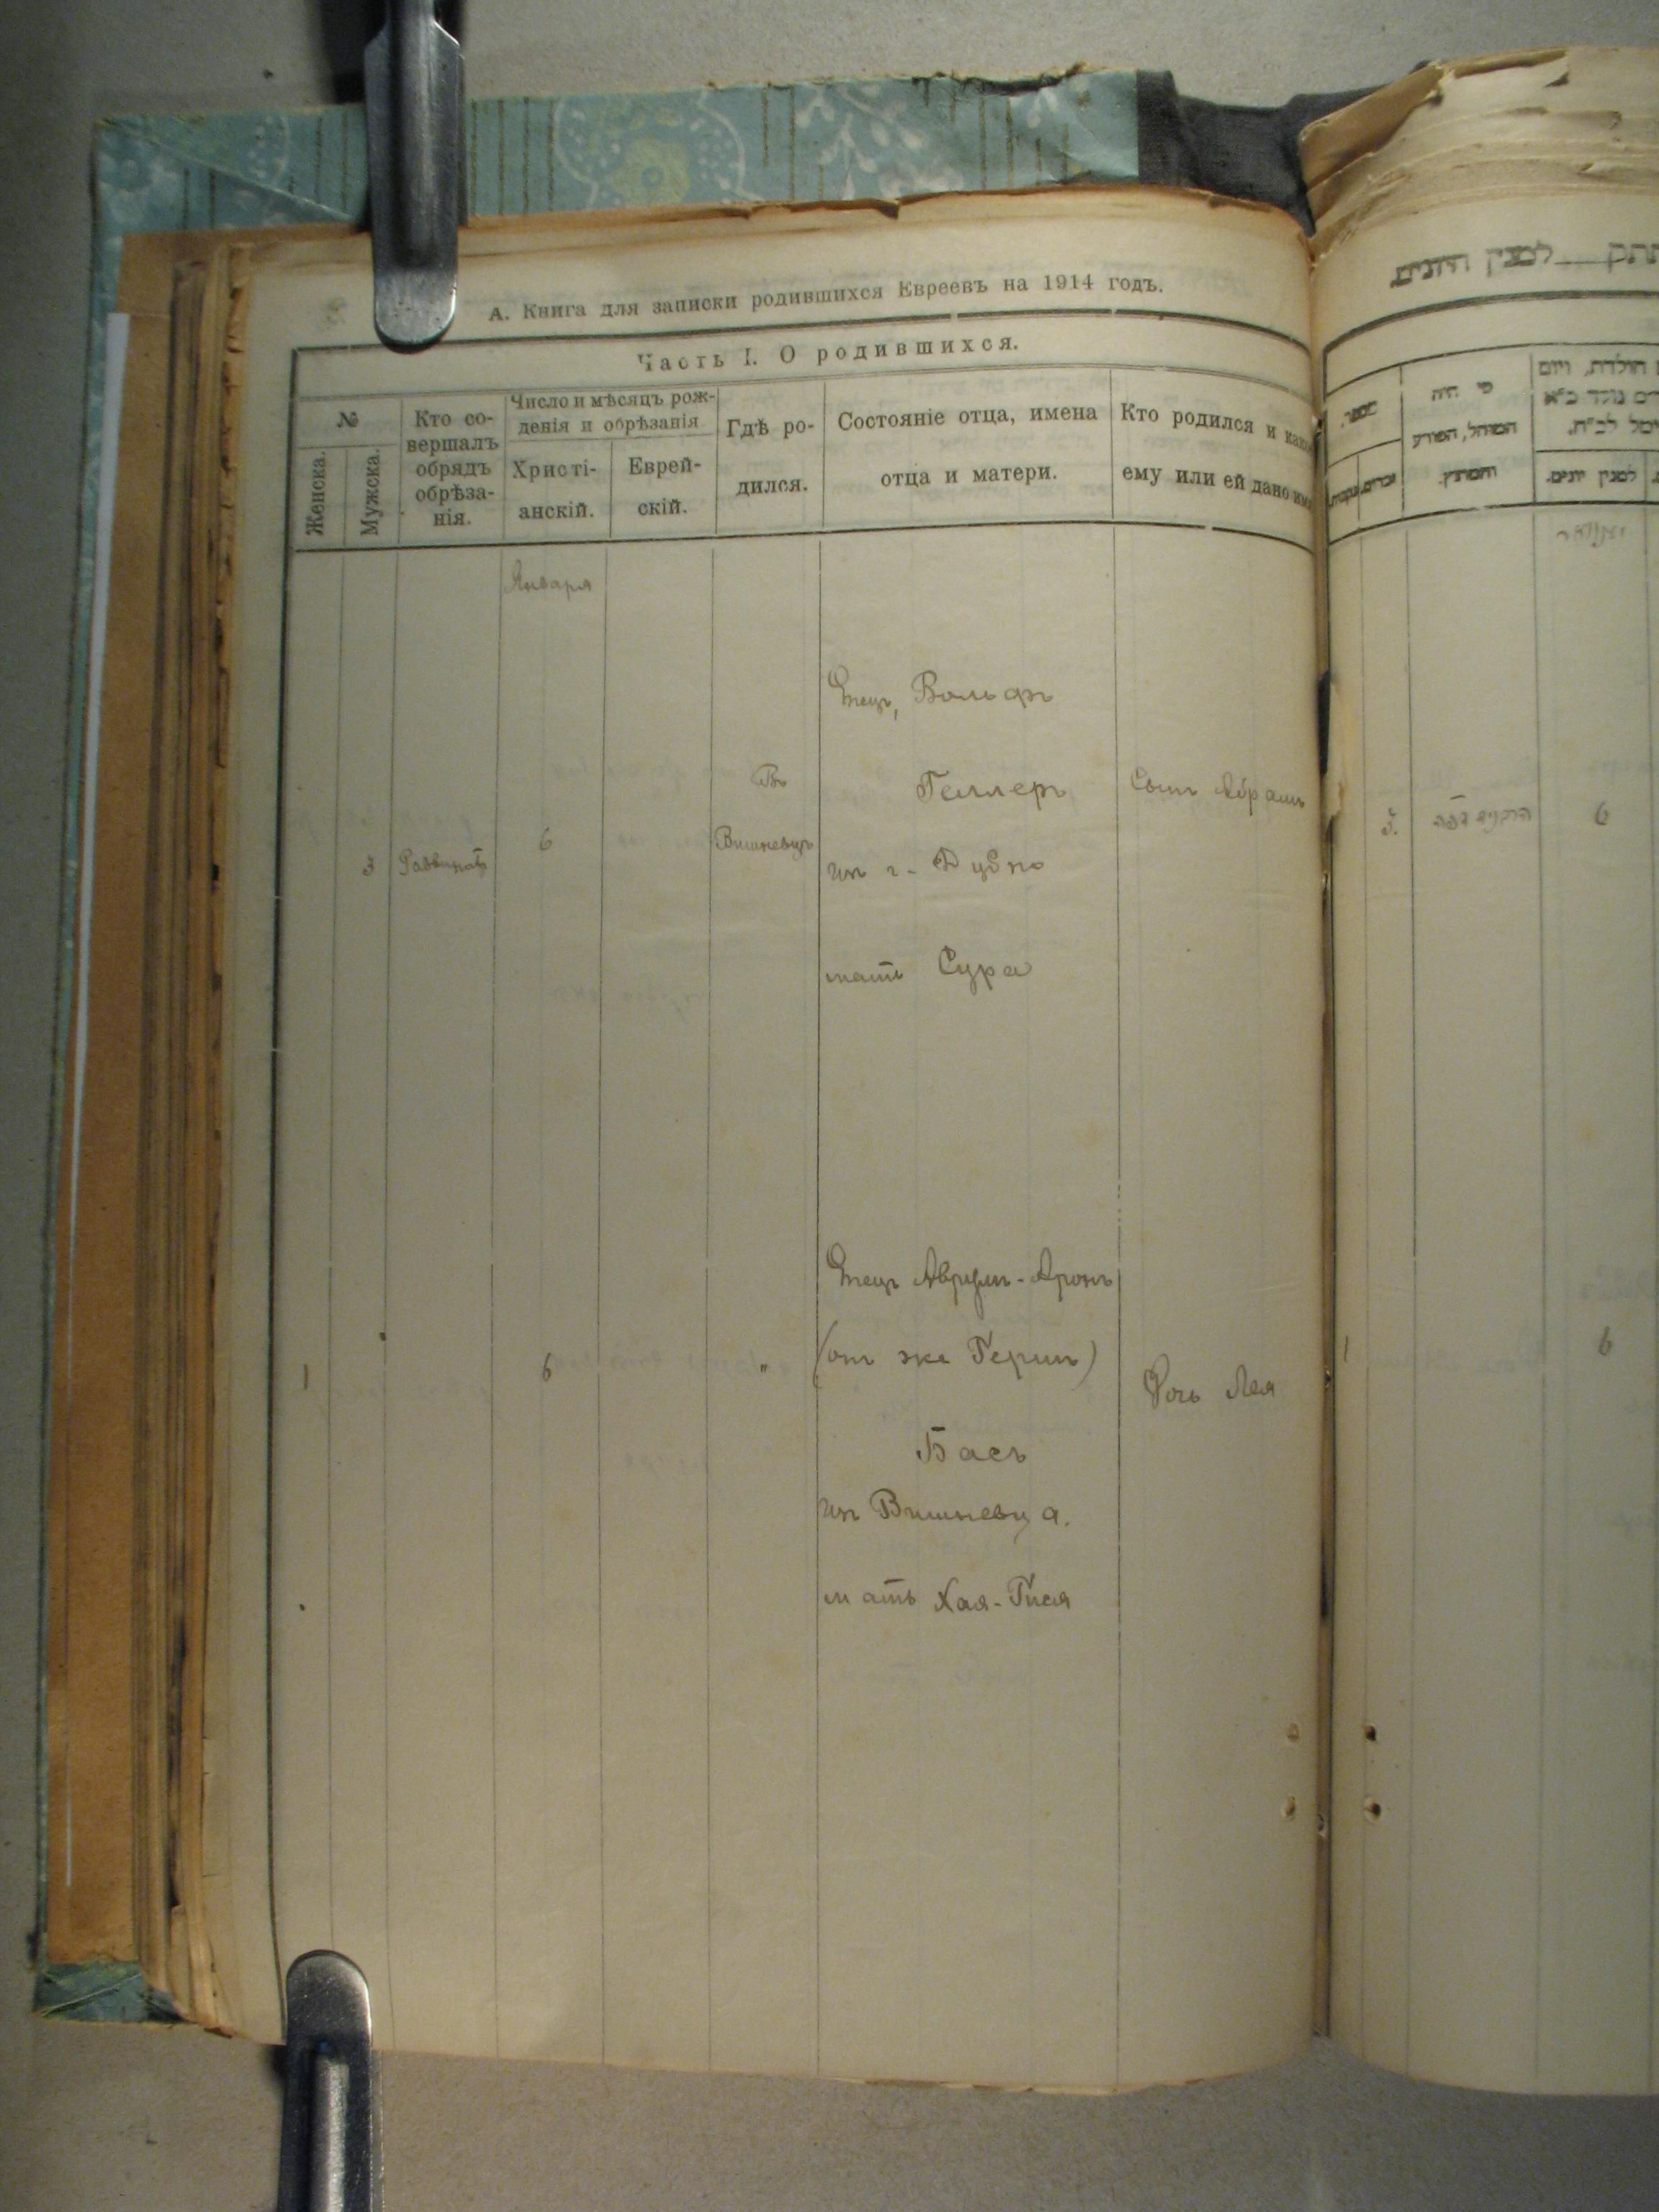 А. Книга для записки родившихся Евреевъ на 1914 годъ.
Часть I. О родившихся.
№
Женска.
Мужска.
Кто со-
вершалъ
обрядъ
обрѣза-
нія.
Число и мѣсяцъ рож-
денія и обрѣзанія
Христі-
анскій.
Еврей-
скій.
Гдѣ ро-
дился.
Состояніе отца, имена
отца и матери.
Кто родился и како
ему или ей дано имя
Января
3
6
Въ
Вишневцъ
Отецъ, Вольфъ
Геллеръ
изъ г. Дубно
мать Сура
Сынъ Абрамъ
1
6
"
Отецъ Аврумъ-Аронъ
(онъ же Гершъ)
Басъ
изъ Вишневца.
мать Хая-Гися
Дочь Лея
למנין היונים
מספר.
זכרים.
נקבות.
מי היה
המוהל, הפורע
והמוצץ.
למנין יונים.
ינואר
3.
6
1
6